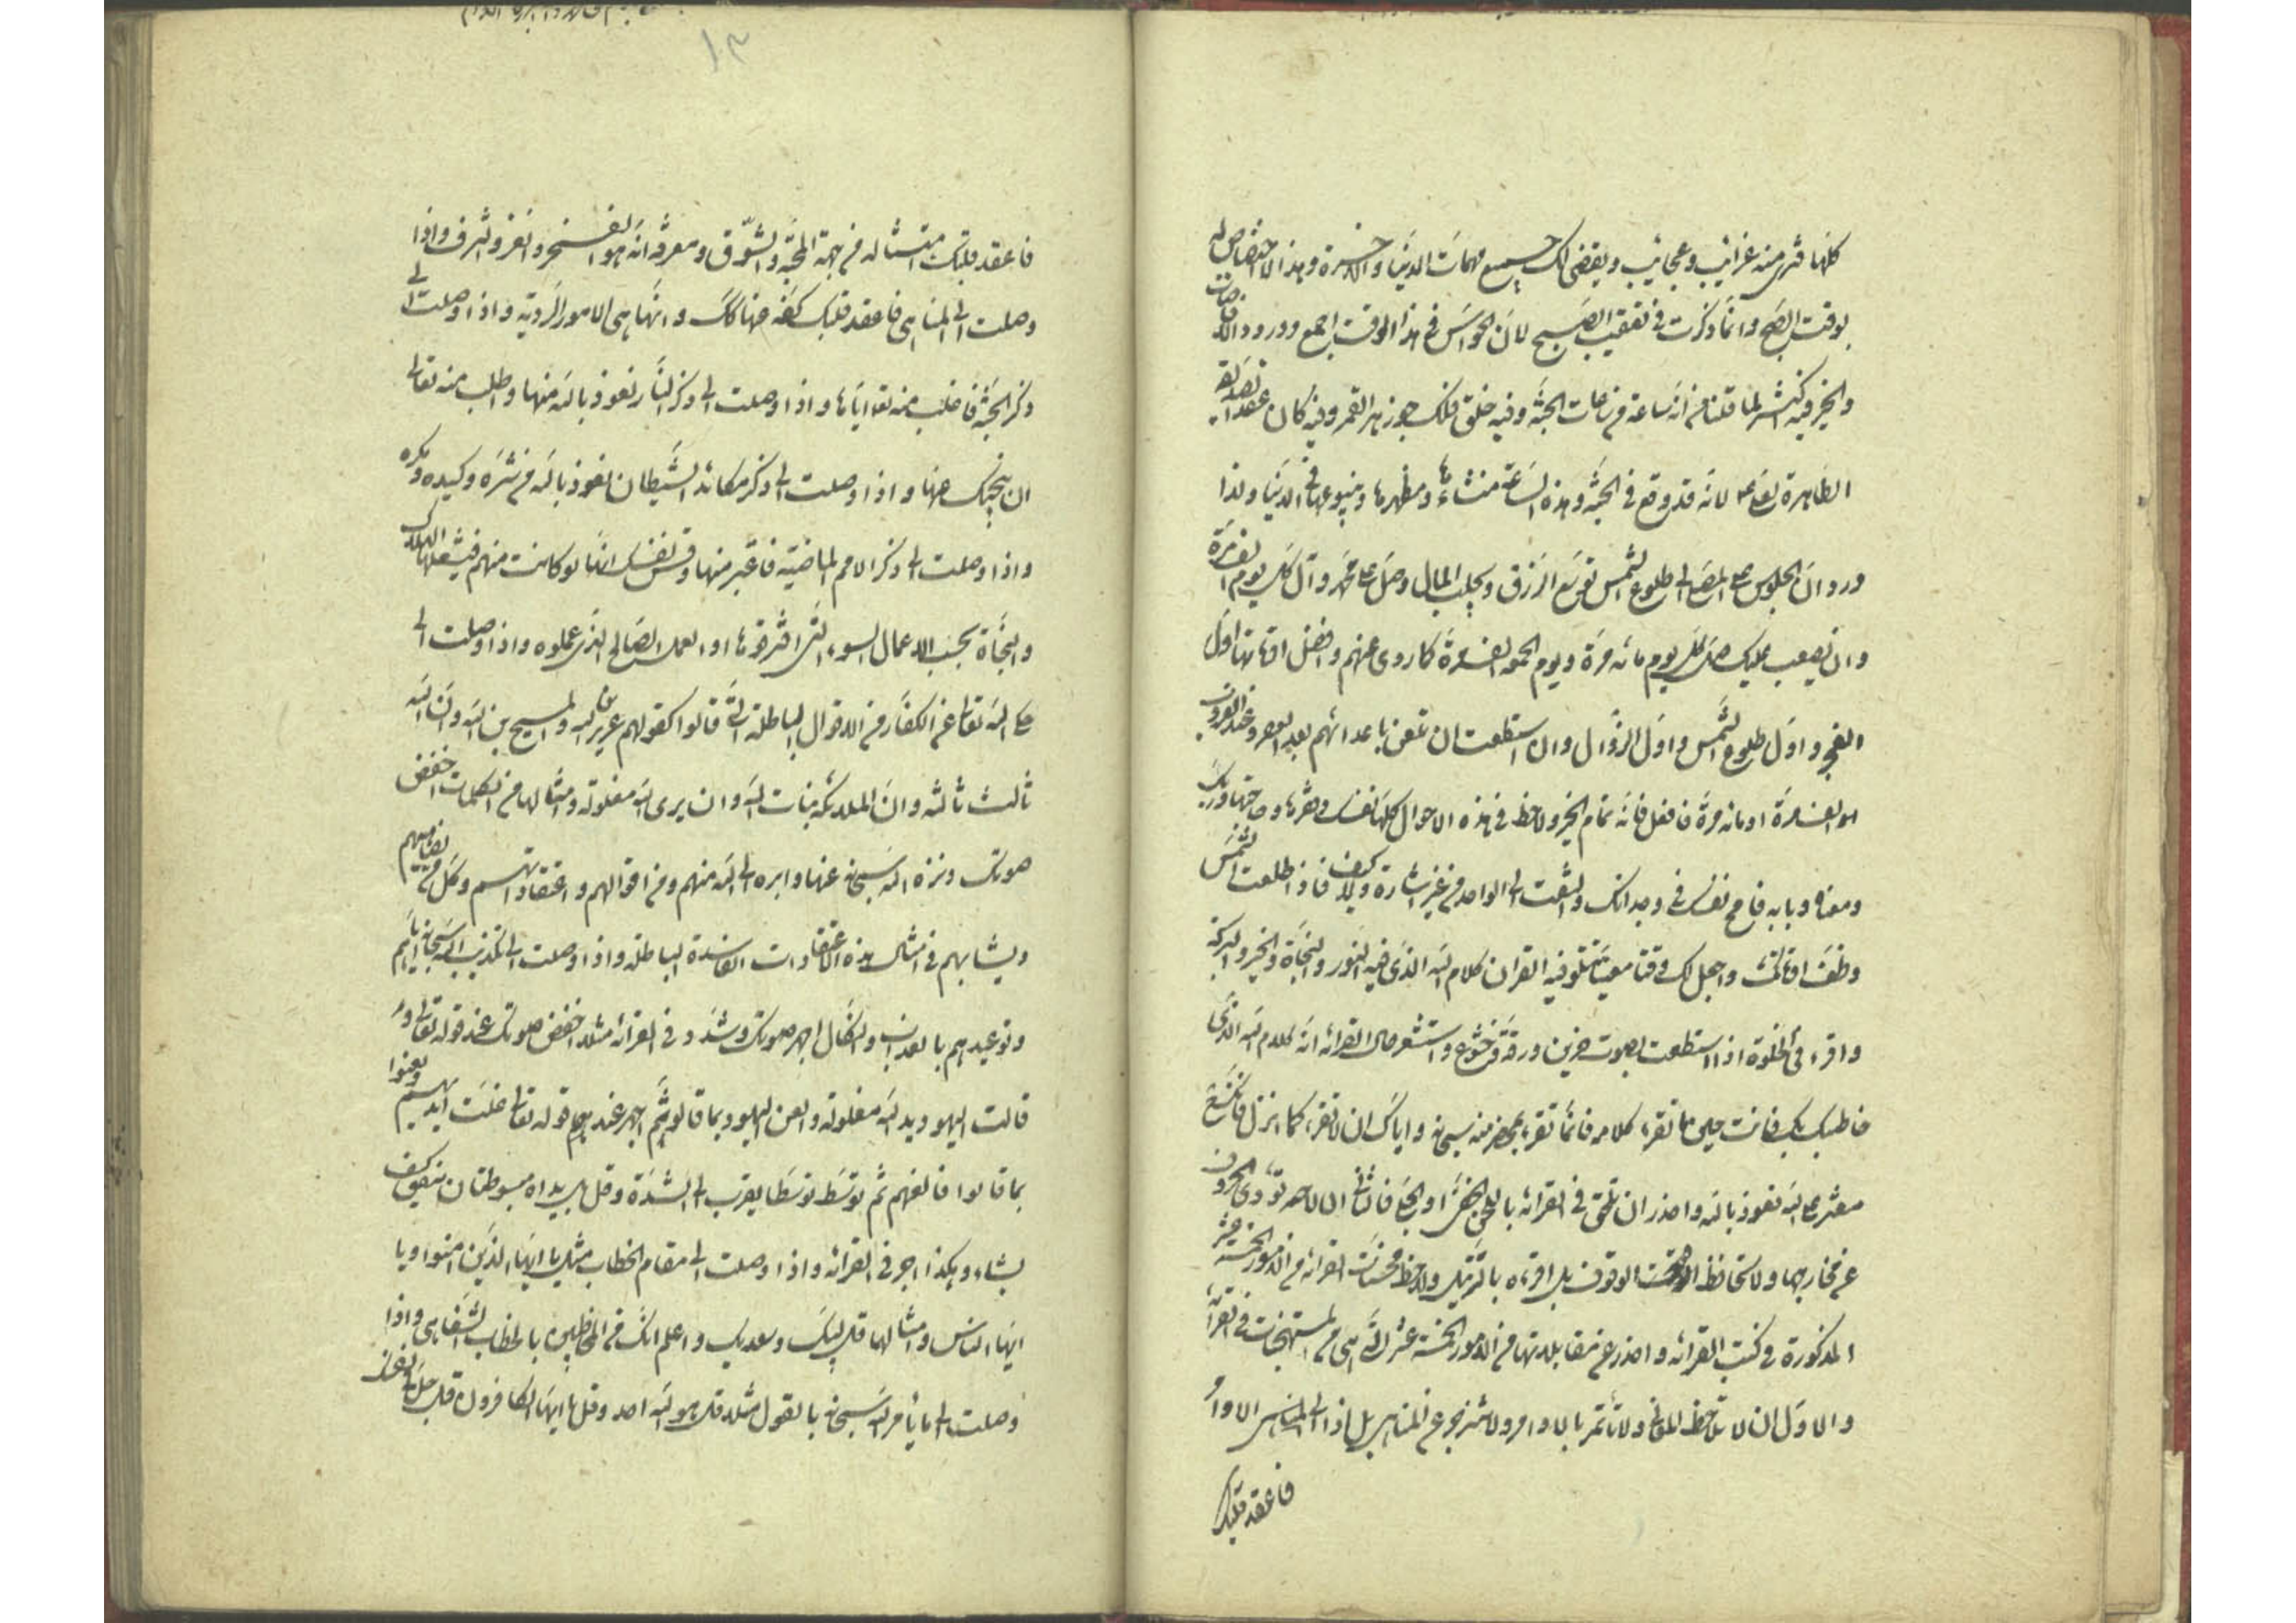 كلها فترى منه غرائب وعجائب ويقضى لك جميع مهمات الدنيا والاخرة وهذا الاختصاص له
بوقت الصبح وانما ذكرت فى تعقيب الصبح لان الحواس فى هذا الوقت اجمع وورود الافاضات
والخير فيه اكثر لما قلنا من انه ساعة من ساعات الجنة وفيه خلق فلك جوزهر القمر وفيه كان عقد
الطاهرة لانه قد وقع فى الجنة وهذه الساعة منشاءها ومظهرها وينبوعها فى الدنيا ولذا
ورد ان الجلوس على المصلى الى طلوع الشمس توسع الرزق ويجلب المال وصل على محمد وآل كل يوم الف مرة
وان يصعب عليك صل كل يوم مائة مرة ويوم الجمعة الف مرة كما روى عنهم وافضل اوقاتها اول
الفجر واول طلوع الشمس واول الزوال وان استطعت ان تلعن باعدائهم بعد العصر وعند الغروب
الف مرة او مائة مرة فافعل فانه تمام الخير ولاحظ فى هذه الاحوال كلها نفسك وفقرها وحاجتها وربك
ومعناه وبابه فامح نفسك فى وجدانك والتفت الى الواحد من غير اشارة ولا كيف فاذا طلعت الشمس
وظف اوقاتك واجعل لك وقتا معينا تتلو فيه القران كلام الله الذى فيه النور والنجاة والخير والبركة
واقرء فى الخلوة اذا استطعت بصوت حزين ورقة وخشوع واستشعر حال القرائة انه كلام الله الذى
خاطبك بك فانت حين ما تقرء كلامه فانما تقرء بمحضر منه سبحانه واياك ان لا تقرء كما انزل فانك
مفتر على الله نعوذ بالله واحذر ان تلحن فى القرائة باللحن الخفى او الجلى فالثانى ان لا تؤدى الحروف
عن مخارجها ولا تحافظ الوقوف بل اقرءه بالترتيل ولاحظ محسنات القرائة من الامور الخمسة عشر
المذكورة فى كتب القرائة واحذر عن مقابلاتها من الامور الخمسة عشر التى هى من المستهجنات فى القرائة
والاول ان لا تلاحظ المعانى ولا تأتمر بالاوامر ولا تنزجر عن المناهى بل اذا الاوامر
فاعقد قلبك
١٣
فاعقد قلبك امتثاله من جهة المحبة والشوق ومعرفة انه هو الفخر والعز والشرف واذا
وصلت الى المناهى فاعقد قلبك كفه عنها كك وانها هى الامور الردية واذا وصلت الى
ذكر الجنة فاطلب منه تعالى اياها واذا وصلت الى ذكر النار نعوذ بالله منها واطلب منه تعالى
ان ينجيك عنها واذا وصلت الى ذكر مكائد الشيطان نعوذ بالله من شره وكيده ومكره
واذا وصلت الى ذكر الامم الماضية فاعتبر منها وقس نفسك انها لو كانت منهم فيشملها الهلاك
والنجاة بحسب الاعمال السوء التى اقترفوها او العمل الصالح الذى عملوه واذا وصلت الى
ما حكى الله تعالى عن الكفار من الاقوال الباطلة التى قالوا كقولهم عزير ابن الله والمسيح بن الله وان الله
ثالث ثلثة وان الملائكة بنات الله وان يدى الله مغلولة وامثالها من الكلمات اخفض
صوتك ونزه الله سبحانه عنها وابرء الى الله منهم ومن اقوالهم واعتقاداتهم وكل من يضاهيهم
ويشابههم فى امثال هذه الاعتقادات الفاسدة الباطلة واذا وصلت الى تكذيب الله سبحانه اياهم
وتوعيدهم بالعذاب والنكال اجهر صوتك وشدد فى القرائة مثلا اخفض صوتك عند قوله تعالى و
قالت اليهود يد الله مغلولة والعن اليهود بما قالوا ثم اجهر عند قوله تعالى غلت ايديهم ولعنوا
بما قالوا فالعنهم ثم توسط توسطا يقرب الى الشدة وقل بل يداه مبسوطتان ينفق كيف
يشاء وهكذا اجر فى القرائة واذا وصلت الى مقام الخطاب مثل يا ايها الذين امنوا ويا
ايها الناس وامثالها قل لبيك وسعديك واعلم انك من المخاطبين بالخطاب الشفاهى واذا
وصلت الى ما يأمر الله سبحانه بالقول مثلا قل هو الله احد وقل يا ايها الكافرون قل